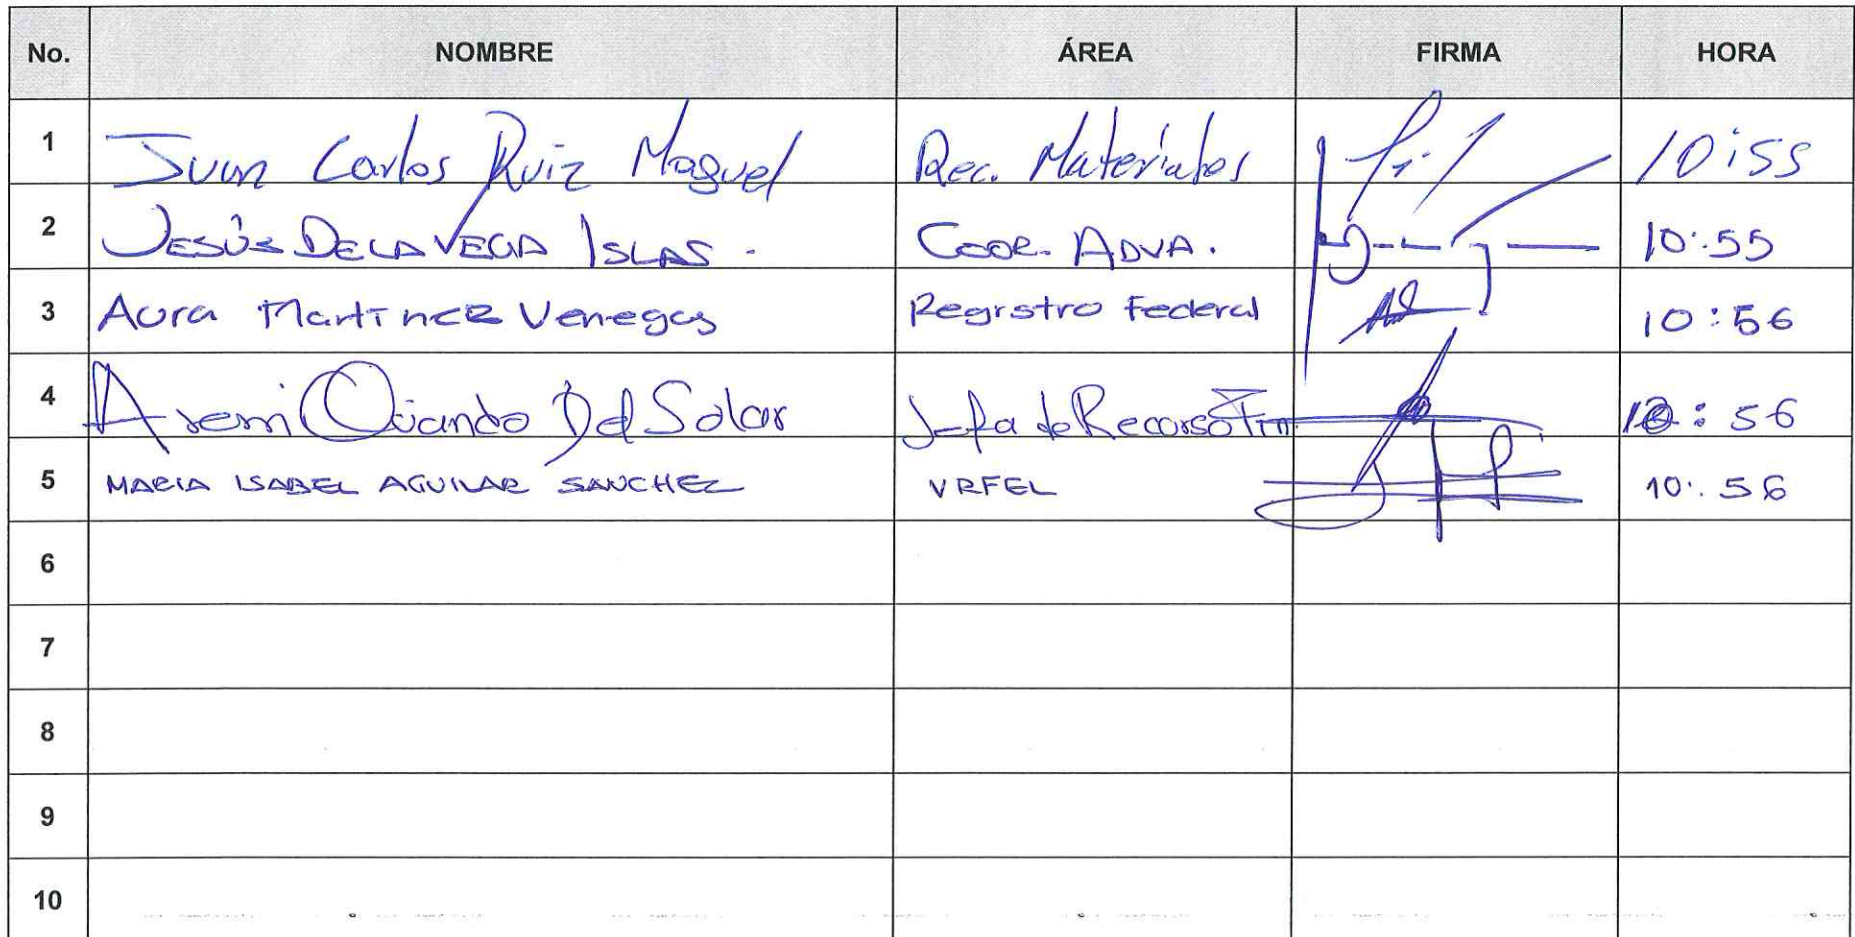 No. NOMBRE ÁREA FIRMA HORA
1 Juan Carlos Ruiz Maguel Rec. Materiales 10:55
2 JESÚS DE LA VEGA ISLAS. COOR. ADVA. 10:55
3 Aura Martinez Venegas Registro Federal 10:56
4 Aremi Del Solar Jefa de Recurso Fin 10:56
5 MARIA ISABEL AGUILAR SANCHEZ VRFEL 10:56
6
7
8
9
10